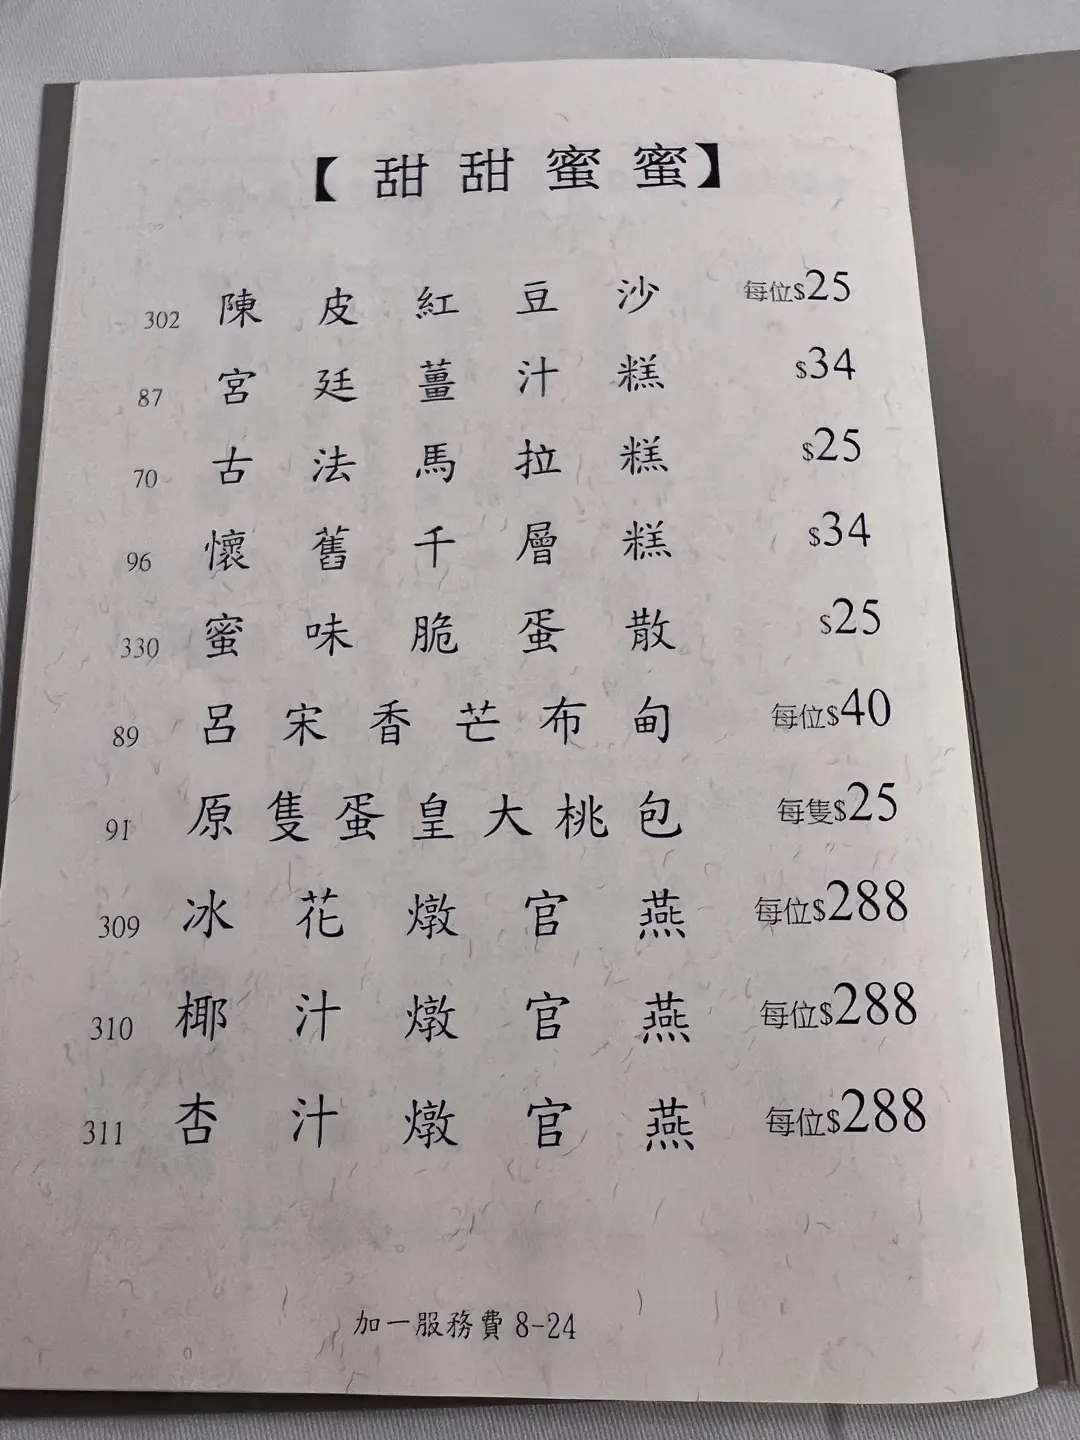 【甜甜蜜蜜】
302 陳皮紅豆沙 每位$25
87 宮廷薑汁糕 $34
70 古法馬拉糕 $25
96 懷舊千層糕 $34
330 蜜味脆蛋散 $25
89 呂宋香芒布甸 每位$40
91 原隻蛋皇大桃包 每隻$25
309 冰花燉官燕 每位$288
310 椰汁燉官燕 每位$288
311 杏汁燉官燕 每位$288
加一服務費 8-24